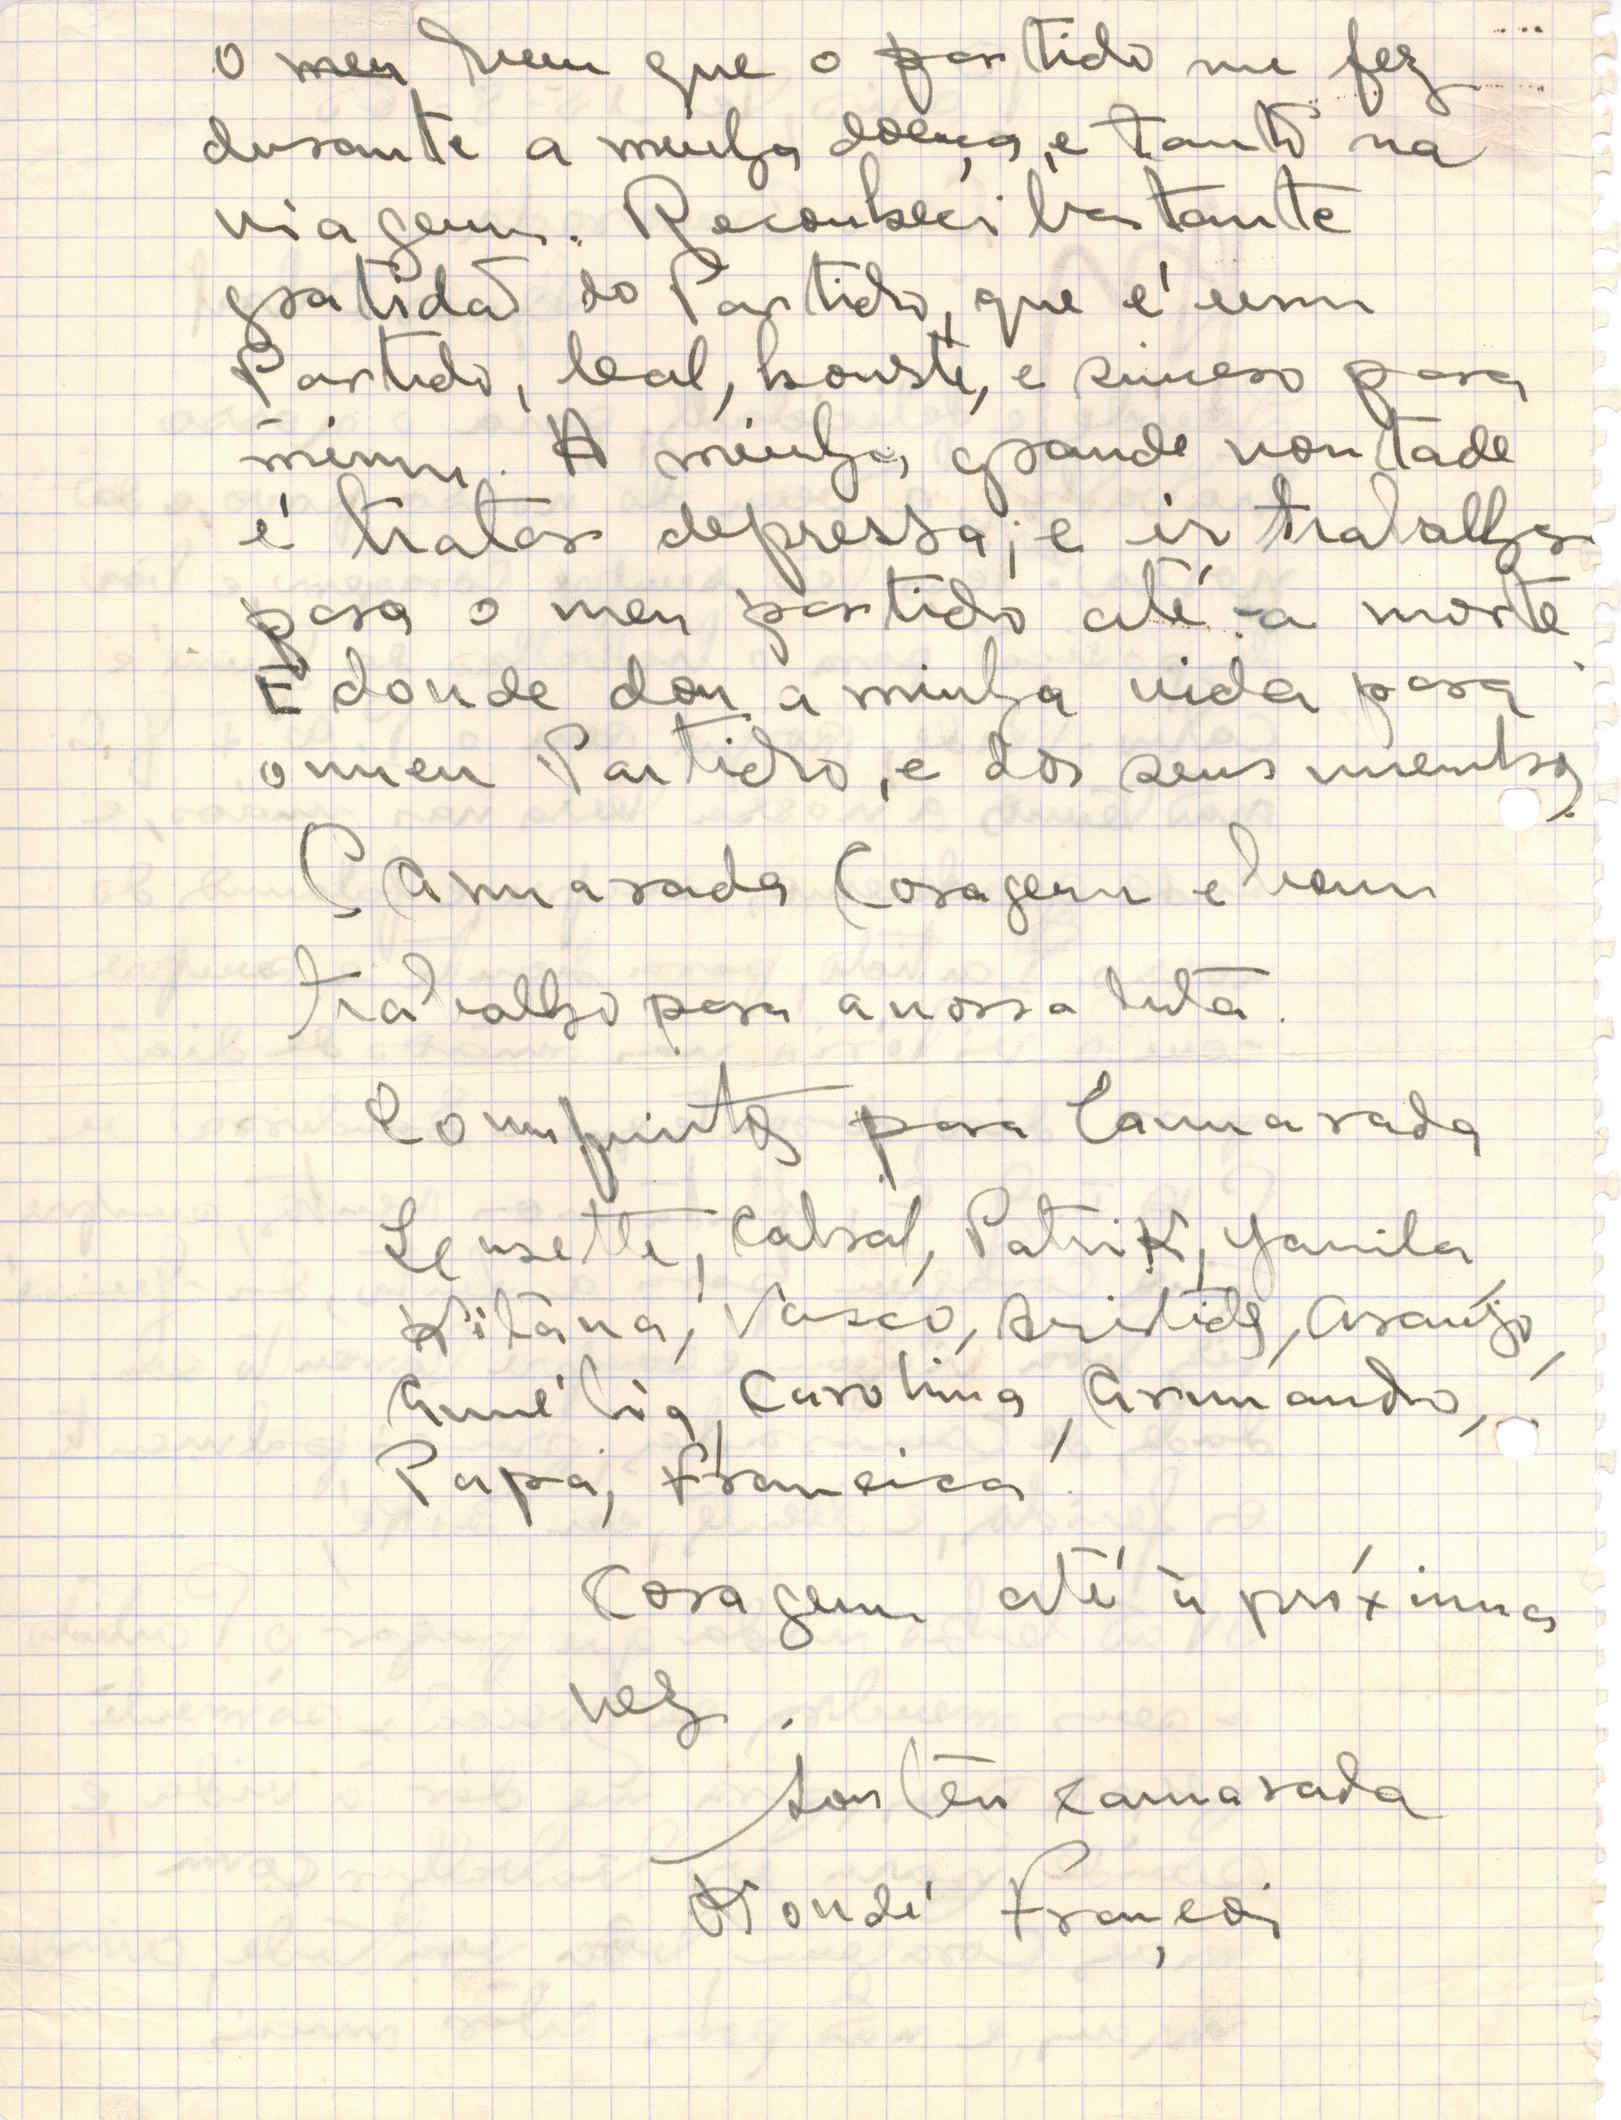 o meu bem que o partido me fez
durante a minha doença, e tanto na
viagem. Reconheci bastante
gratidão do Partido, que é um
Partido, leal, honeste, e sincero para
mimm. A minha grande vontade
é tratar depressa, e ir trabalhar
para o meu partido até a morte
E donde dou a minha vida para
o meu Partido, e dos seus membros.
Camarada Coragem e bom
trabalho para a nossa luta.
Comprintos para Camarada
Leusette, Cabral, Patrik, Yamila,
Kilāna, Vasco, Aristides, Araújo,
Amélia, Carolina, Armando,
Papa, Francisca.
Coragem até à próxima
vez.
camarada
François